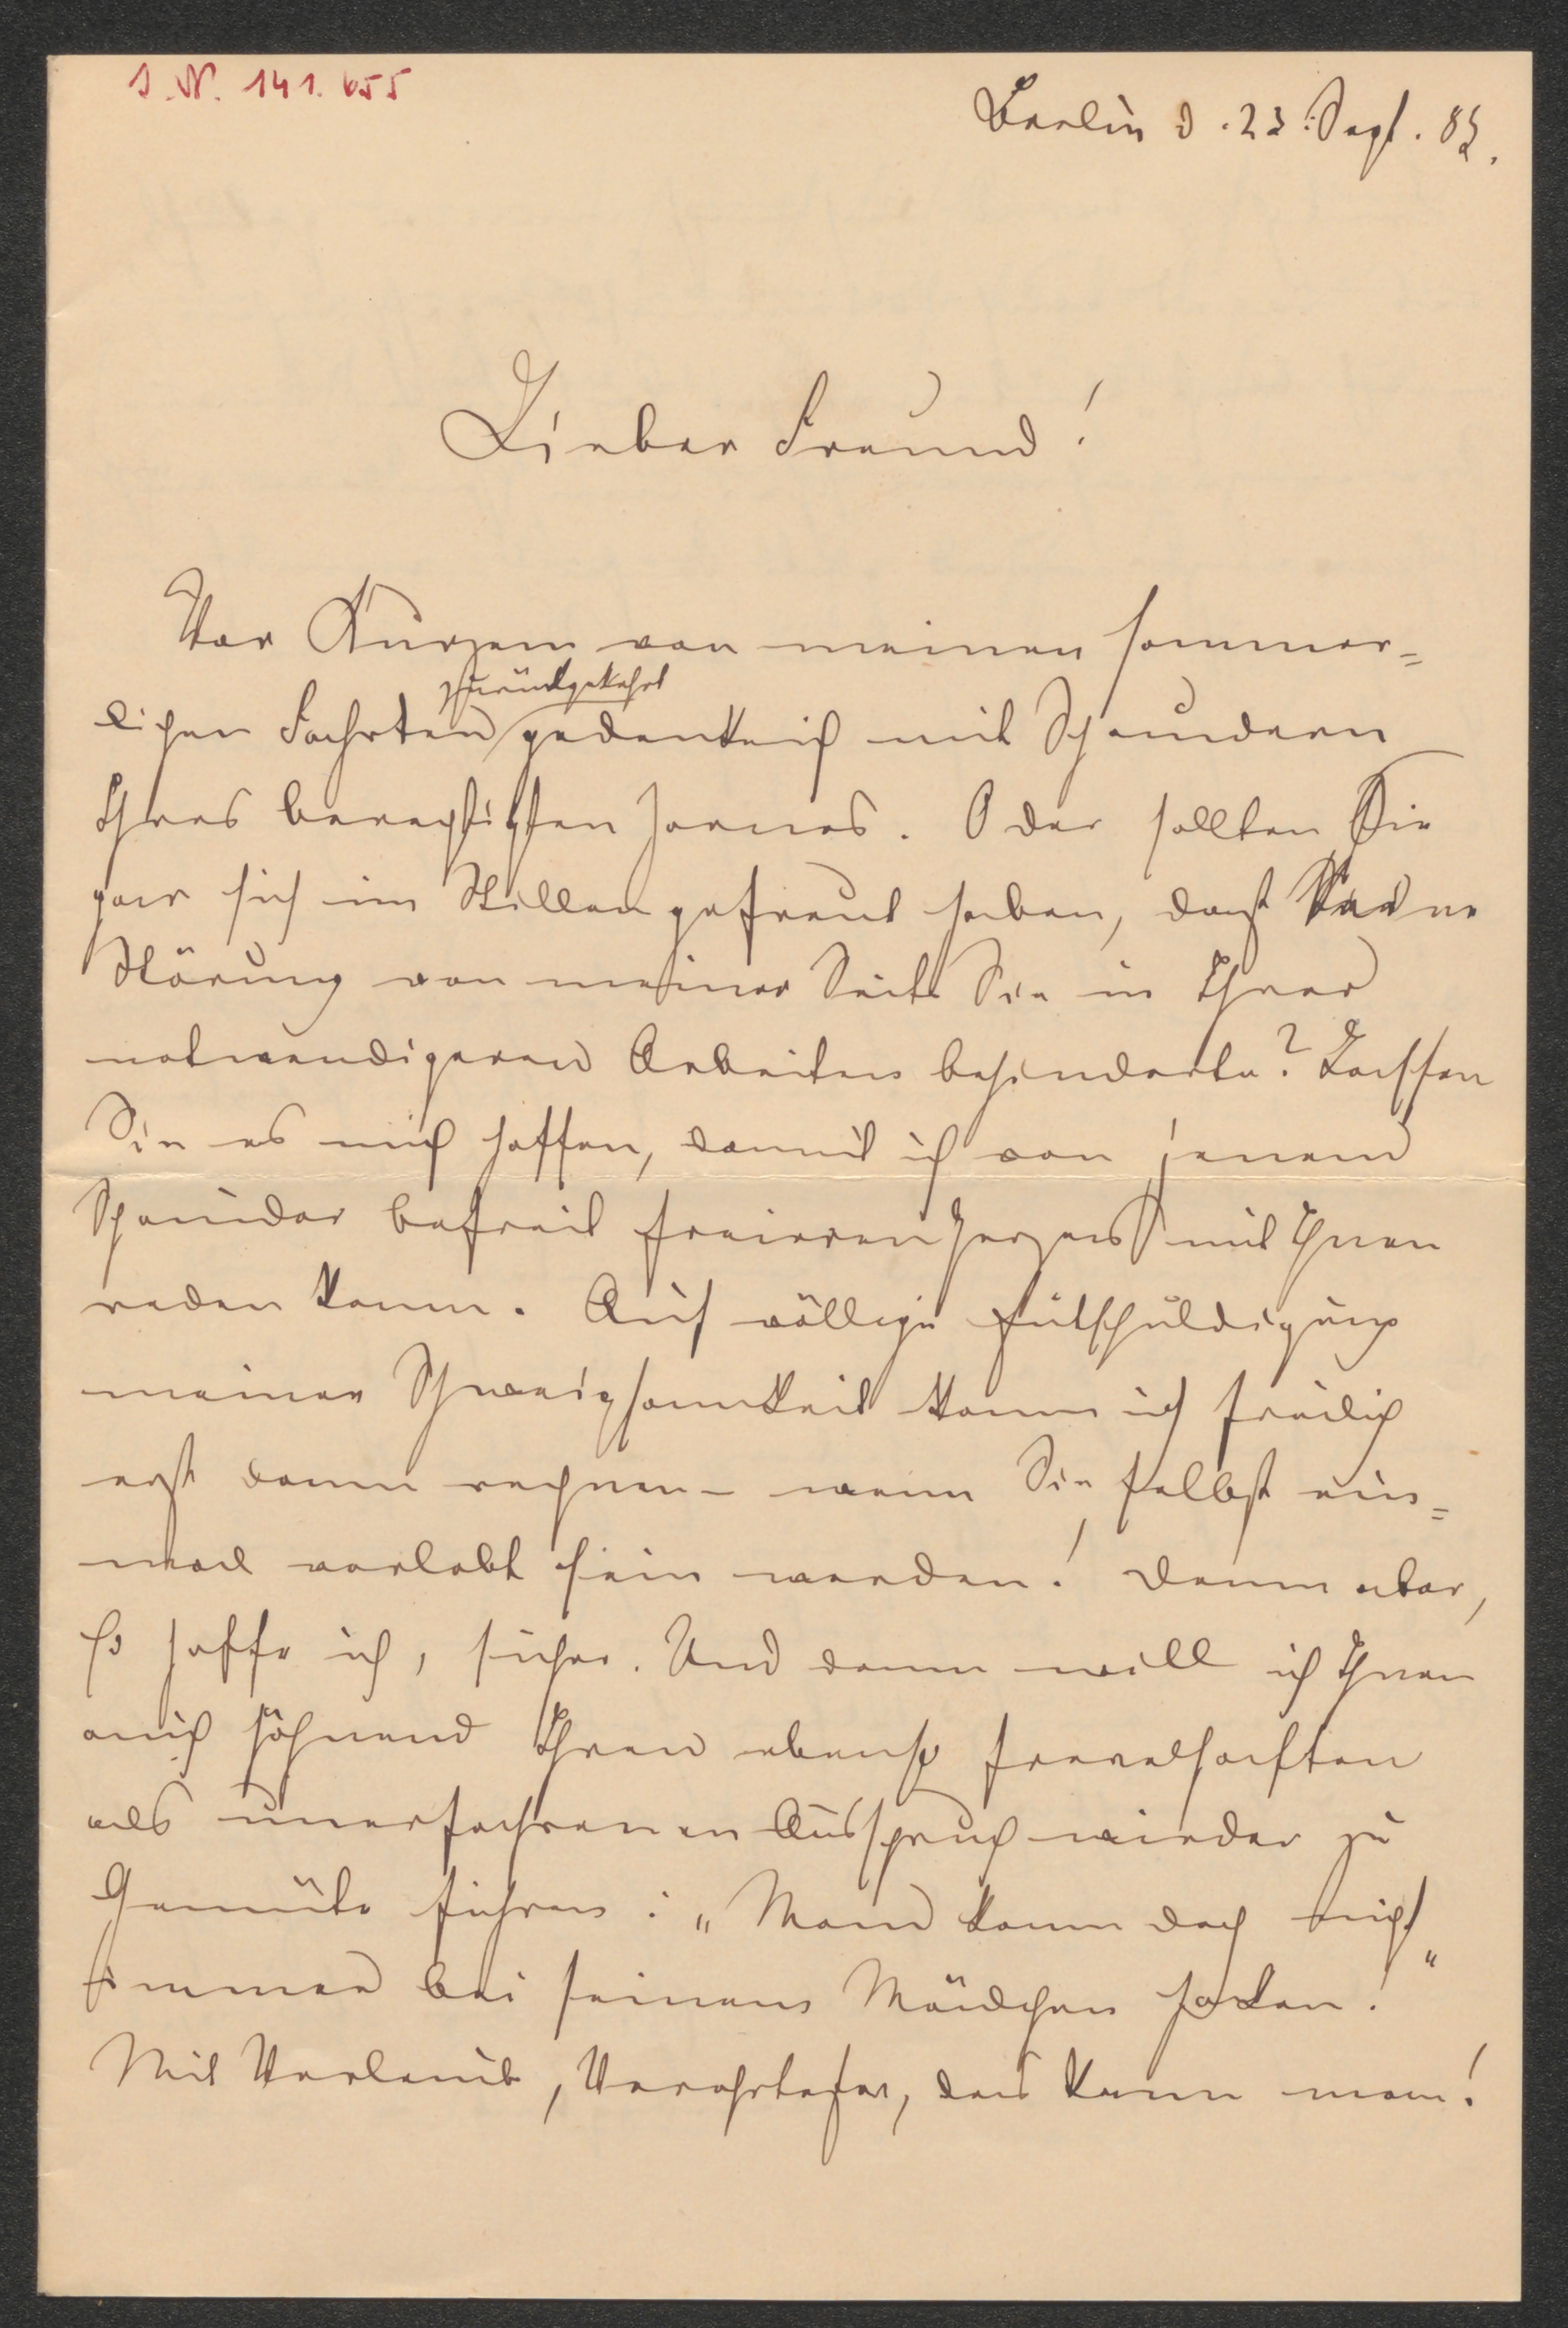 I.N. 141.655
Berlin d. 23. Sept. 85.
Lieber Freund!
Vor Kurzem von meinen sommer=
zurückgekehrt
lichen Fahrten gedenke ich mit Schaudern
Ihres berechtigsten Zornes. Oder sollten Sie
gar sich im Stillen gefreut haben, dass keine
Störung von meiner Seite Sie in Ihren
notwendigeren Arbeiten behinderte? Lassen
Sie es mich hoffen, damit ich von jenem
Schauder befreit freieren Herzens mit Ihnen
reden kann. Auf völlige Entschuldigung
meiner Schweigsamkeit kann ich freilich
erst dann rechnen – wenn Sie selbst ein=
mal verlobt sein werden! Dann aber,
so hoffe ich, sicher. Und dann will ich Ihnen
auch höhnend Ihren ebenso frevelhaften
als unerfahrenen Ausspruch wieder zu
Gemüte führen: „Man kann doch nicht
immer bei seinem Mädchen hocken!“
Mit Verlaub, Verehrtester, das kann man!